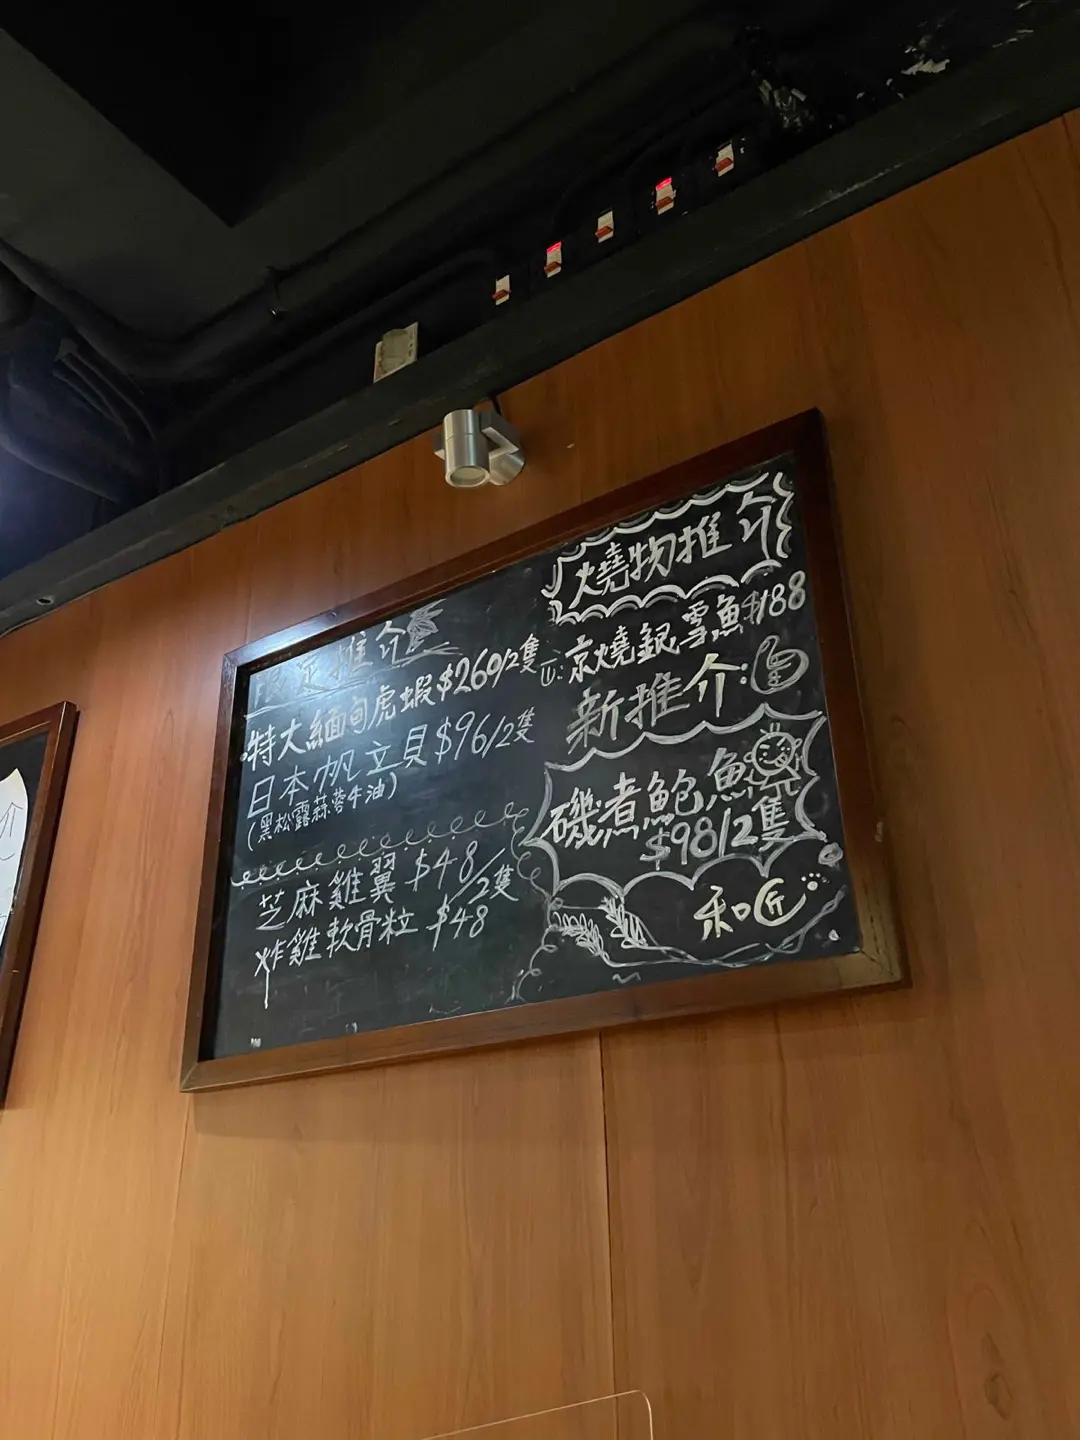 限定推介
特大緬甸虎蝦$260/2隻
日本帆立貝$96/2隻
(黑松露蒜蓉牛油)
芝麻雞翼 $48/2隻
炸雞軟骨粒 $48
燒物推介
京燒銀雪魚$188
新推介:
磯煮鮑魚
$98/2隻
和匠